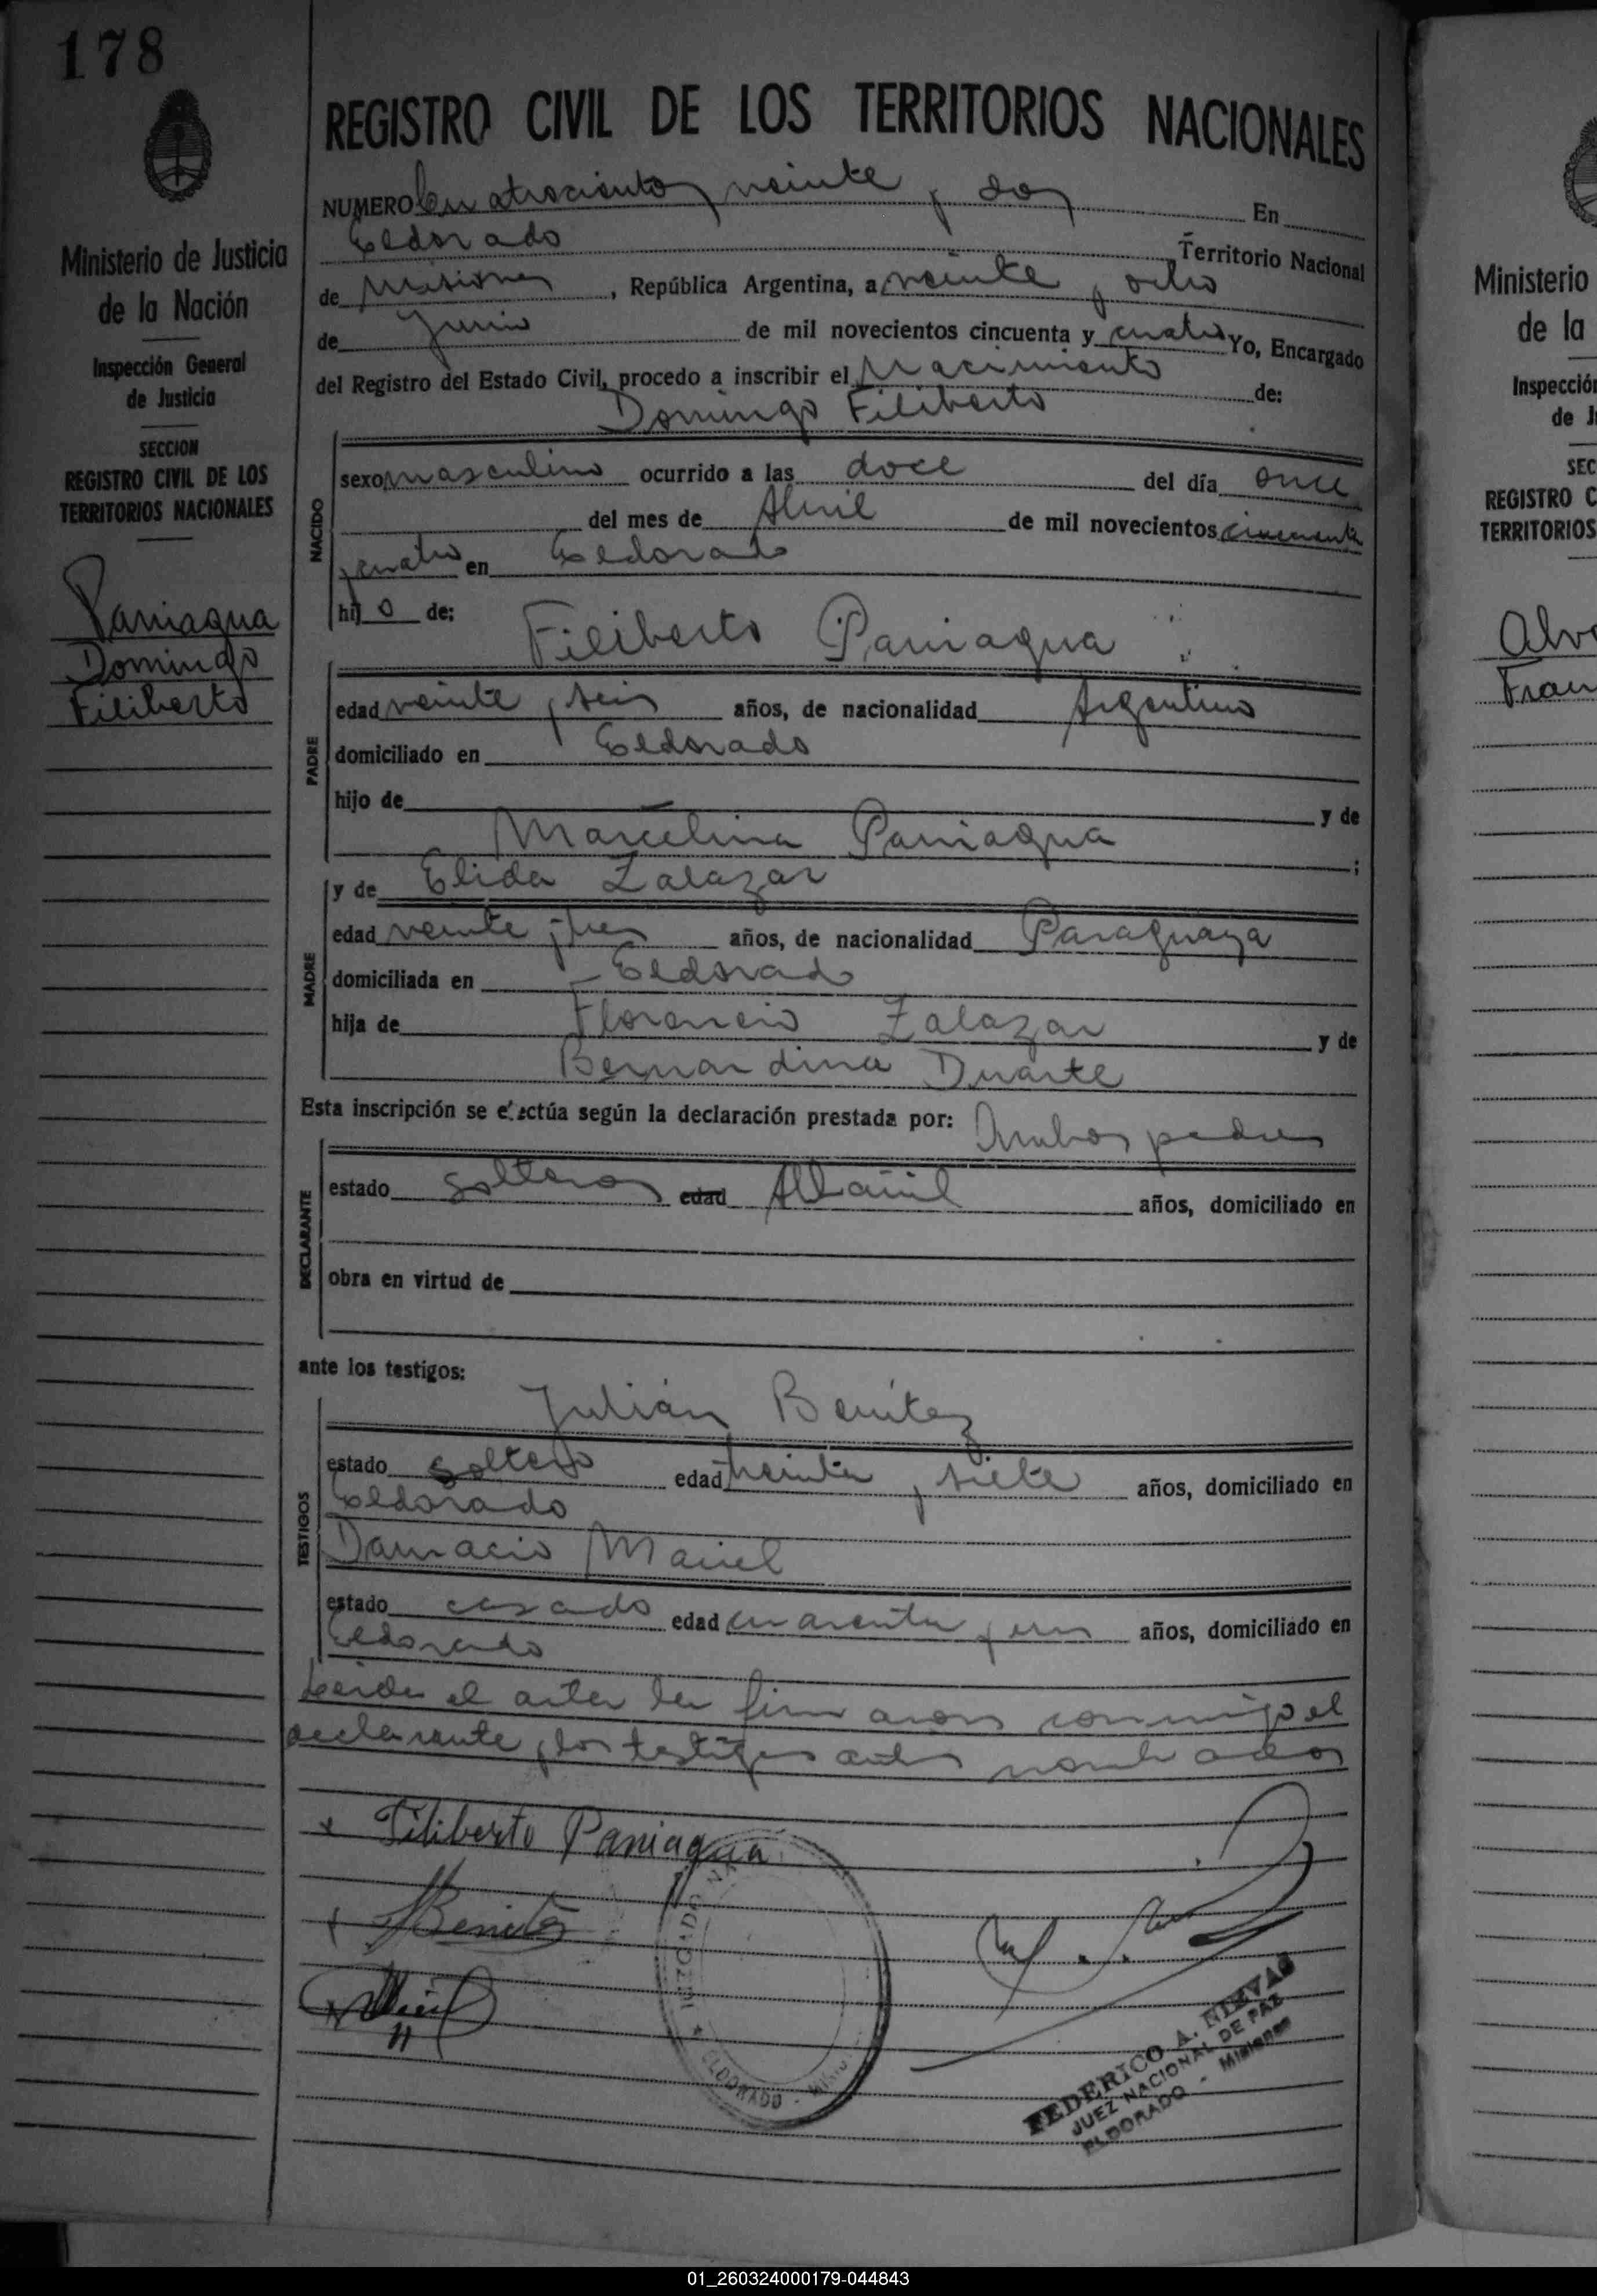 178
Ministerio de Justicia
de la Nación
Inspección General
de Justicia
SECCION
REGISTRO CIVIL DE LOS
TERRITORIOS NACIONALES
Paniagua
Domingo
Filiberto
REGISTRO CIVIL DE LOS TERRITORIOS NACIONALES
NUMERO Cuatrocientos veinte y dos En
Eldorado Territorio Nacional
de Misiones, República Argentina, a veinte y ocho
de Junio de mil novecientos cincuenta y cuatro Yo, Encargado
del Registro del Estado Civil, procedo a inscribir el Nacimiento de:
Domingo Filiberto
NACIDO
sexo masculino ocurrido a las doce del día once
del mes de Abril de mil novecientos cincuenta
y cuatro en Eldorado
hijo de: Filiberto Paniagua
PADRE
edad veinte y seis años, de nacionalidad Argentino
domiciliado en Eldorado
hijo de — y de
Marcelina Paniagua ;
y de Elida Zalazar
MADRE
edad veinte y tres años, de nacionalidad Paraguaya
domiciliada en Eldorado
hija de Florencio Zalazar y de
Bernardina Duarte
Esta inscripción se efectúa según la declaración prestada por: Ambos padres
DECLARANTE
estado solteros edad Albañil años, domiciliado en
obra en virtud de
ante los testigos:
Julián Benítez
TESTIGOS
estado soltero edad treinta y siete años, domiciliado en
Eldorado
Damacio Maciel
estado casado edad cuarenta y un años, domiciliado en
Eldorado
Leida el acta la firmaron conmigo el
declarante y los testigos antes nombrados
x Filiberto Paniagua
x Benitez
JUZGADO
ELDORADO
FEDERICO A. NIEVAS
JUEZ NACIONAL DE PAZ
ELDORADO - Misiones
Ministerio
de la
Inspección
de J
SEC
REGISTRO C
TERRITORIOS
Alv
Fran
01_260324000179-044843